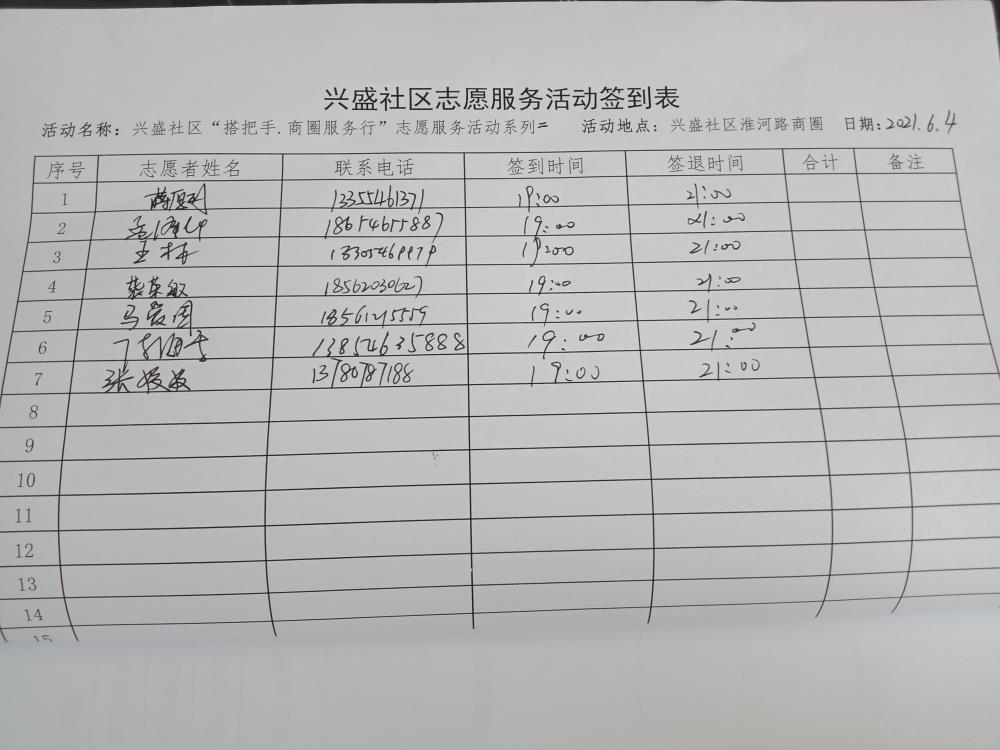 兴盛社区志愿服务活动签到表
活动名称：兴盛社区“搭把手.商圈服务行”志愿服务活动系列二 活动地点：兴盛社区淮河路商圈 日期：2021.6.4
序号 志愿者姓名 联系电话 签到时间 签退时间 合计 备注
1 13355461371 19:00 21:00
2 18654615887 19:00 21:00
3 王林 19:00 21:00
4 18562030627 19:00 21:00
5 马爱国 19:00 21:00
6 13854635888 19:00 21:00
7 张媛媛 13780787188 19:00 21:00
8
9
10
11
12
13
14
15